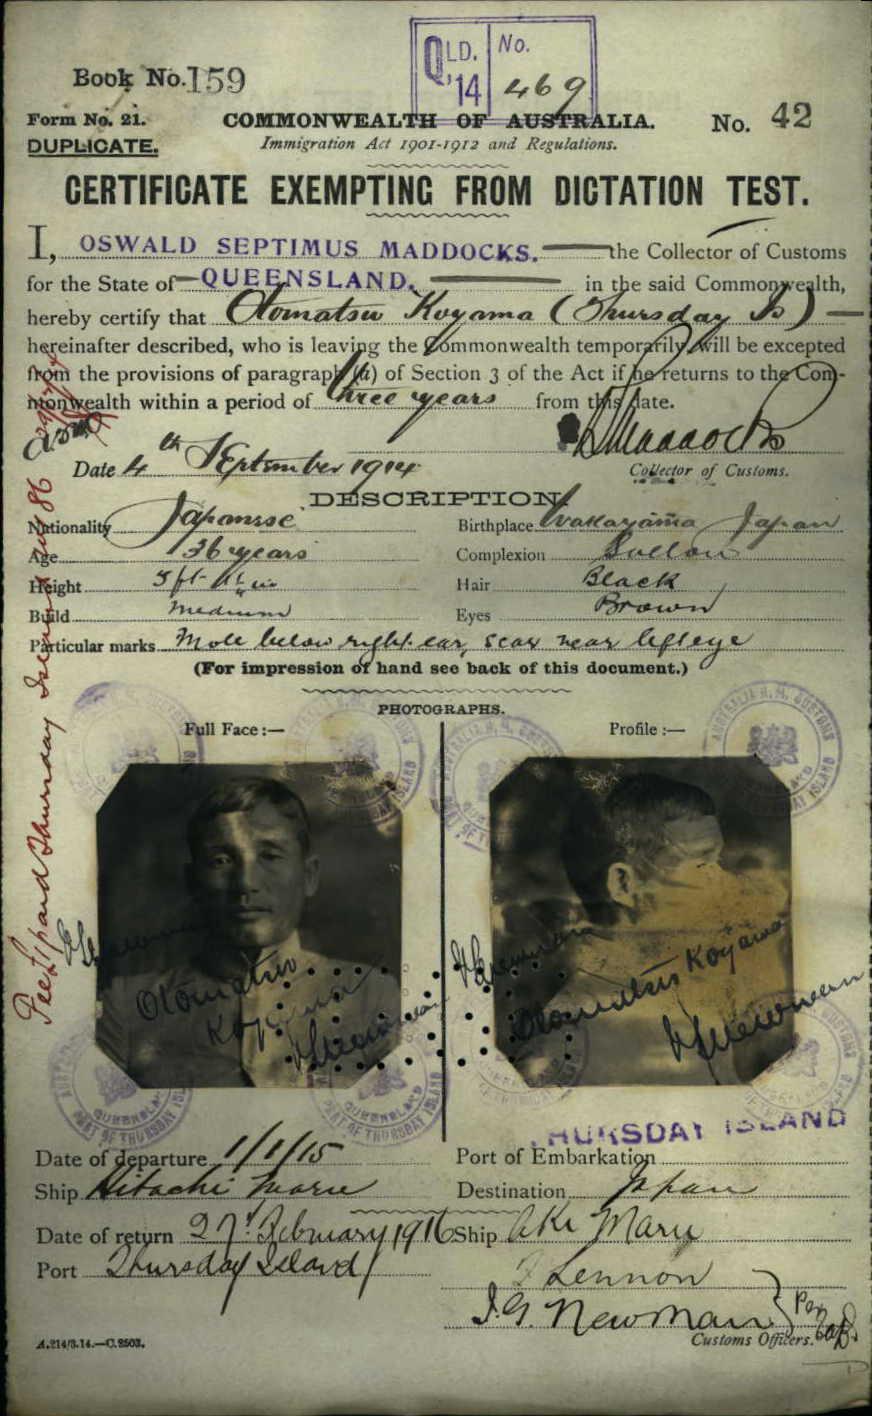 QLD. No.
'14 469
Book No. 159
Form No. 21. COMMONWEALTH OF AUSTRALIA. No. 42
DUPLICATE. Immigration Act 1901-1912 and Regulations.
CERTIFICATE EXEMPTING FROM DICTATION TEST.
I, OSWALD SEPTIMUS MADDOCKS. the Collector of Customs
for the State of QUEENSLAND. in the said Commonwealth,
hereby certify that Otomatsu Koyama (Thursday Is)
hereinafter described, who is leaving the Commonwealth temporarily will be excepted
from the provisions of paragraph (a) of Section 3 of the Act if he returns to the Com-
monwealth within a period of three years from this date.
OSMaddocks
Date 4th September 1914 Collector of Customs.
DESCRIPTION
Nationality Japanese Birthplace Wakayama Japan
Age 36 years Complexion Sallow
Height 5 ft Hair Black
Build medium Eyes Brown
Particular marks Mole below right ear, scar near left eye
(For impression of hand see back of this document.)
PHOTOGRAPHS.
Full Face :— Profile :—
Otomatsu Koyama
Otomatsu Koyama
THURSDAY ISLAND
Date of departure 1/1/15 Port of Embarkation
Ship Hitachi Maru Destination Japan
Date of return 27th February 1916 Ship Aki Maru
Port Thursday Island
Lennon
I.G. Newman
Customs Officers.
A.214/3.14.—C.2503.
Fee £1 paid Thursday Island